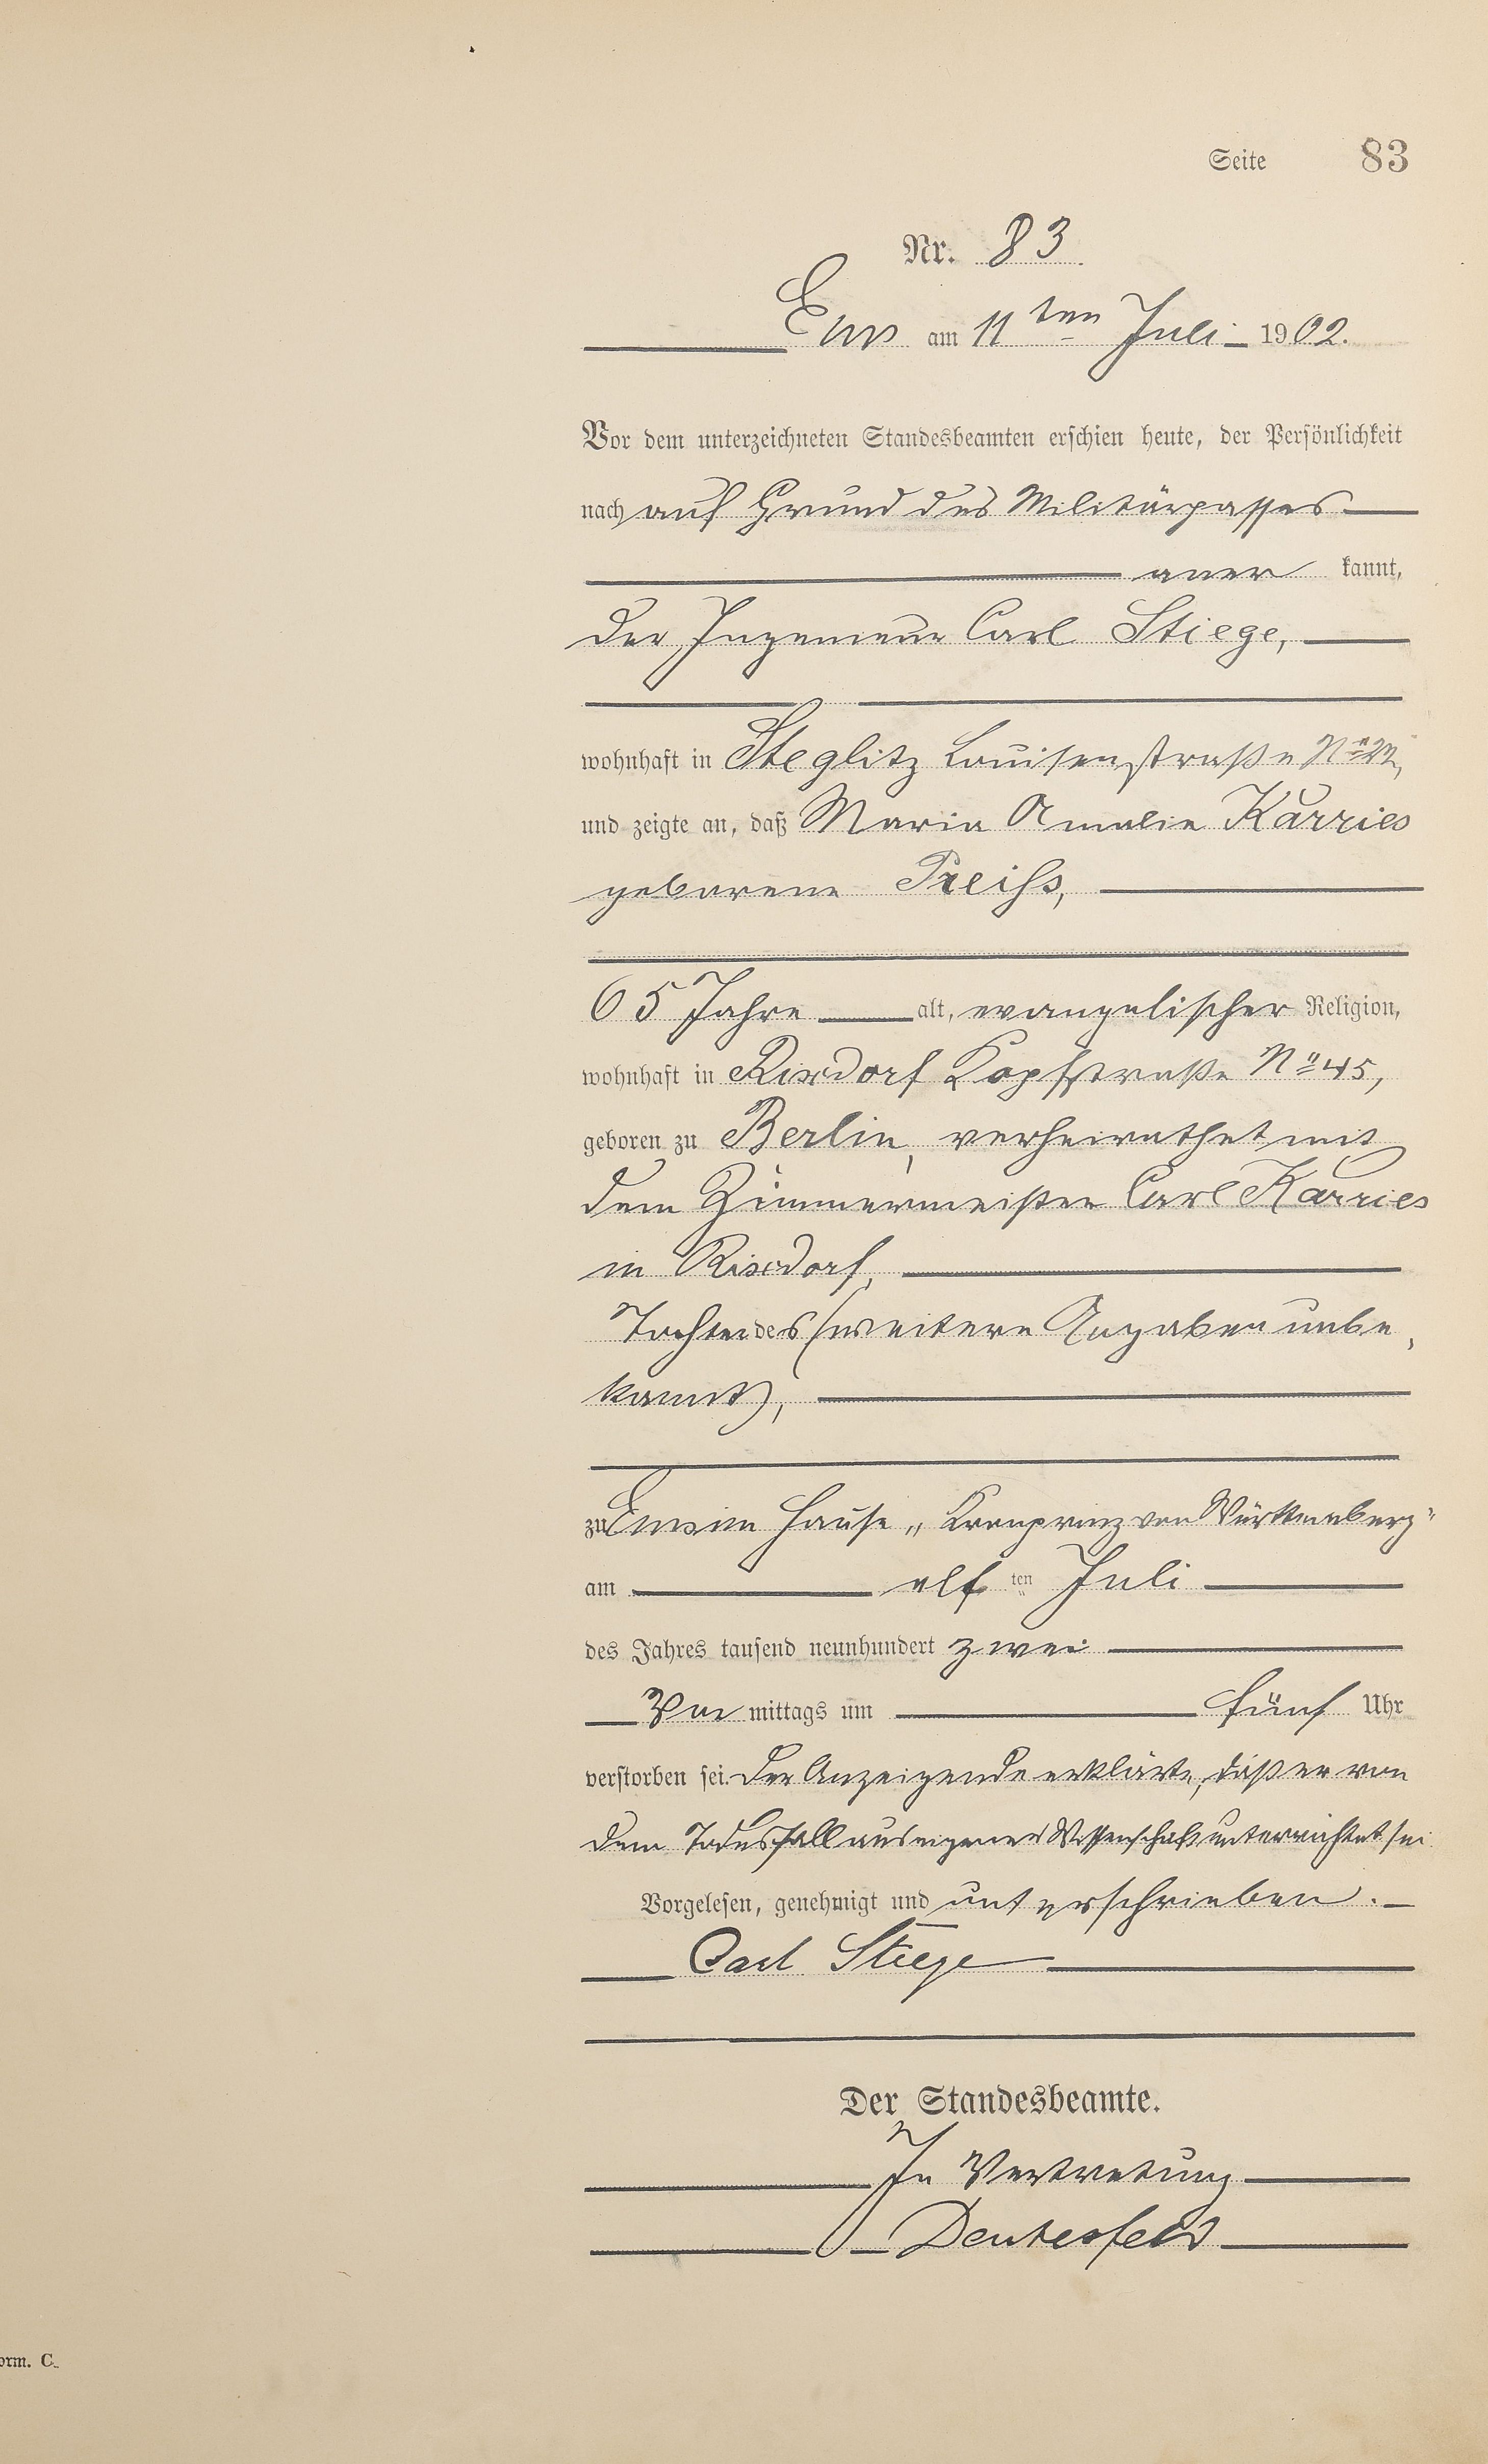 Seite 83
Nr. 83
Ems am 11ten Juli 1902.
Vor dem unterzeichneten Standesbeamten erschien heute, der Persönlichkeit
nach auf Grund des Militärpasses
aner kannt,
der Ingenieur Carl Stiege,
wohnhaft in Steglitz Louisenstraße No
und zeigte an, daß Maria Amalie Karries
geborene Preiss,
65 Jahre alt, evangelischer Religion,
wohnhaft in Rixdorf Kopfstraße No 45,
geboren zu Berlin, verheirathet mit
dem Zimmermeister Carl Karries
in Rixdorf,
Tochter des (weitere Angaben unbe
kannt),
zu Ems im Hause „Kronprinz von Württemberg"
am elf ten Juli
des Jahres tausend neunhundert zwei
Vor mittags um fünf Uhr
verstorben sei. Der Anzeigende erklärte, daß er von
dem Todesfall aus eigener Wissenschaft unterrichtet sei
Vorgelesen, genehmigt und unterschrieben.
Carl Stiege
Der Standesbeamte.
In Vertretung
Deutesfeld
orm. C.